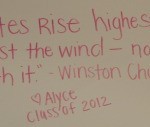 tes rise highes
st the wind – no
h it." - Winston Chu
♡ Alyce
Class of 2012